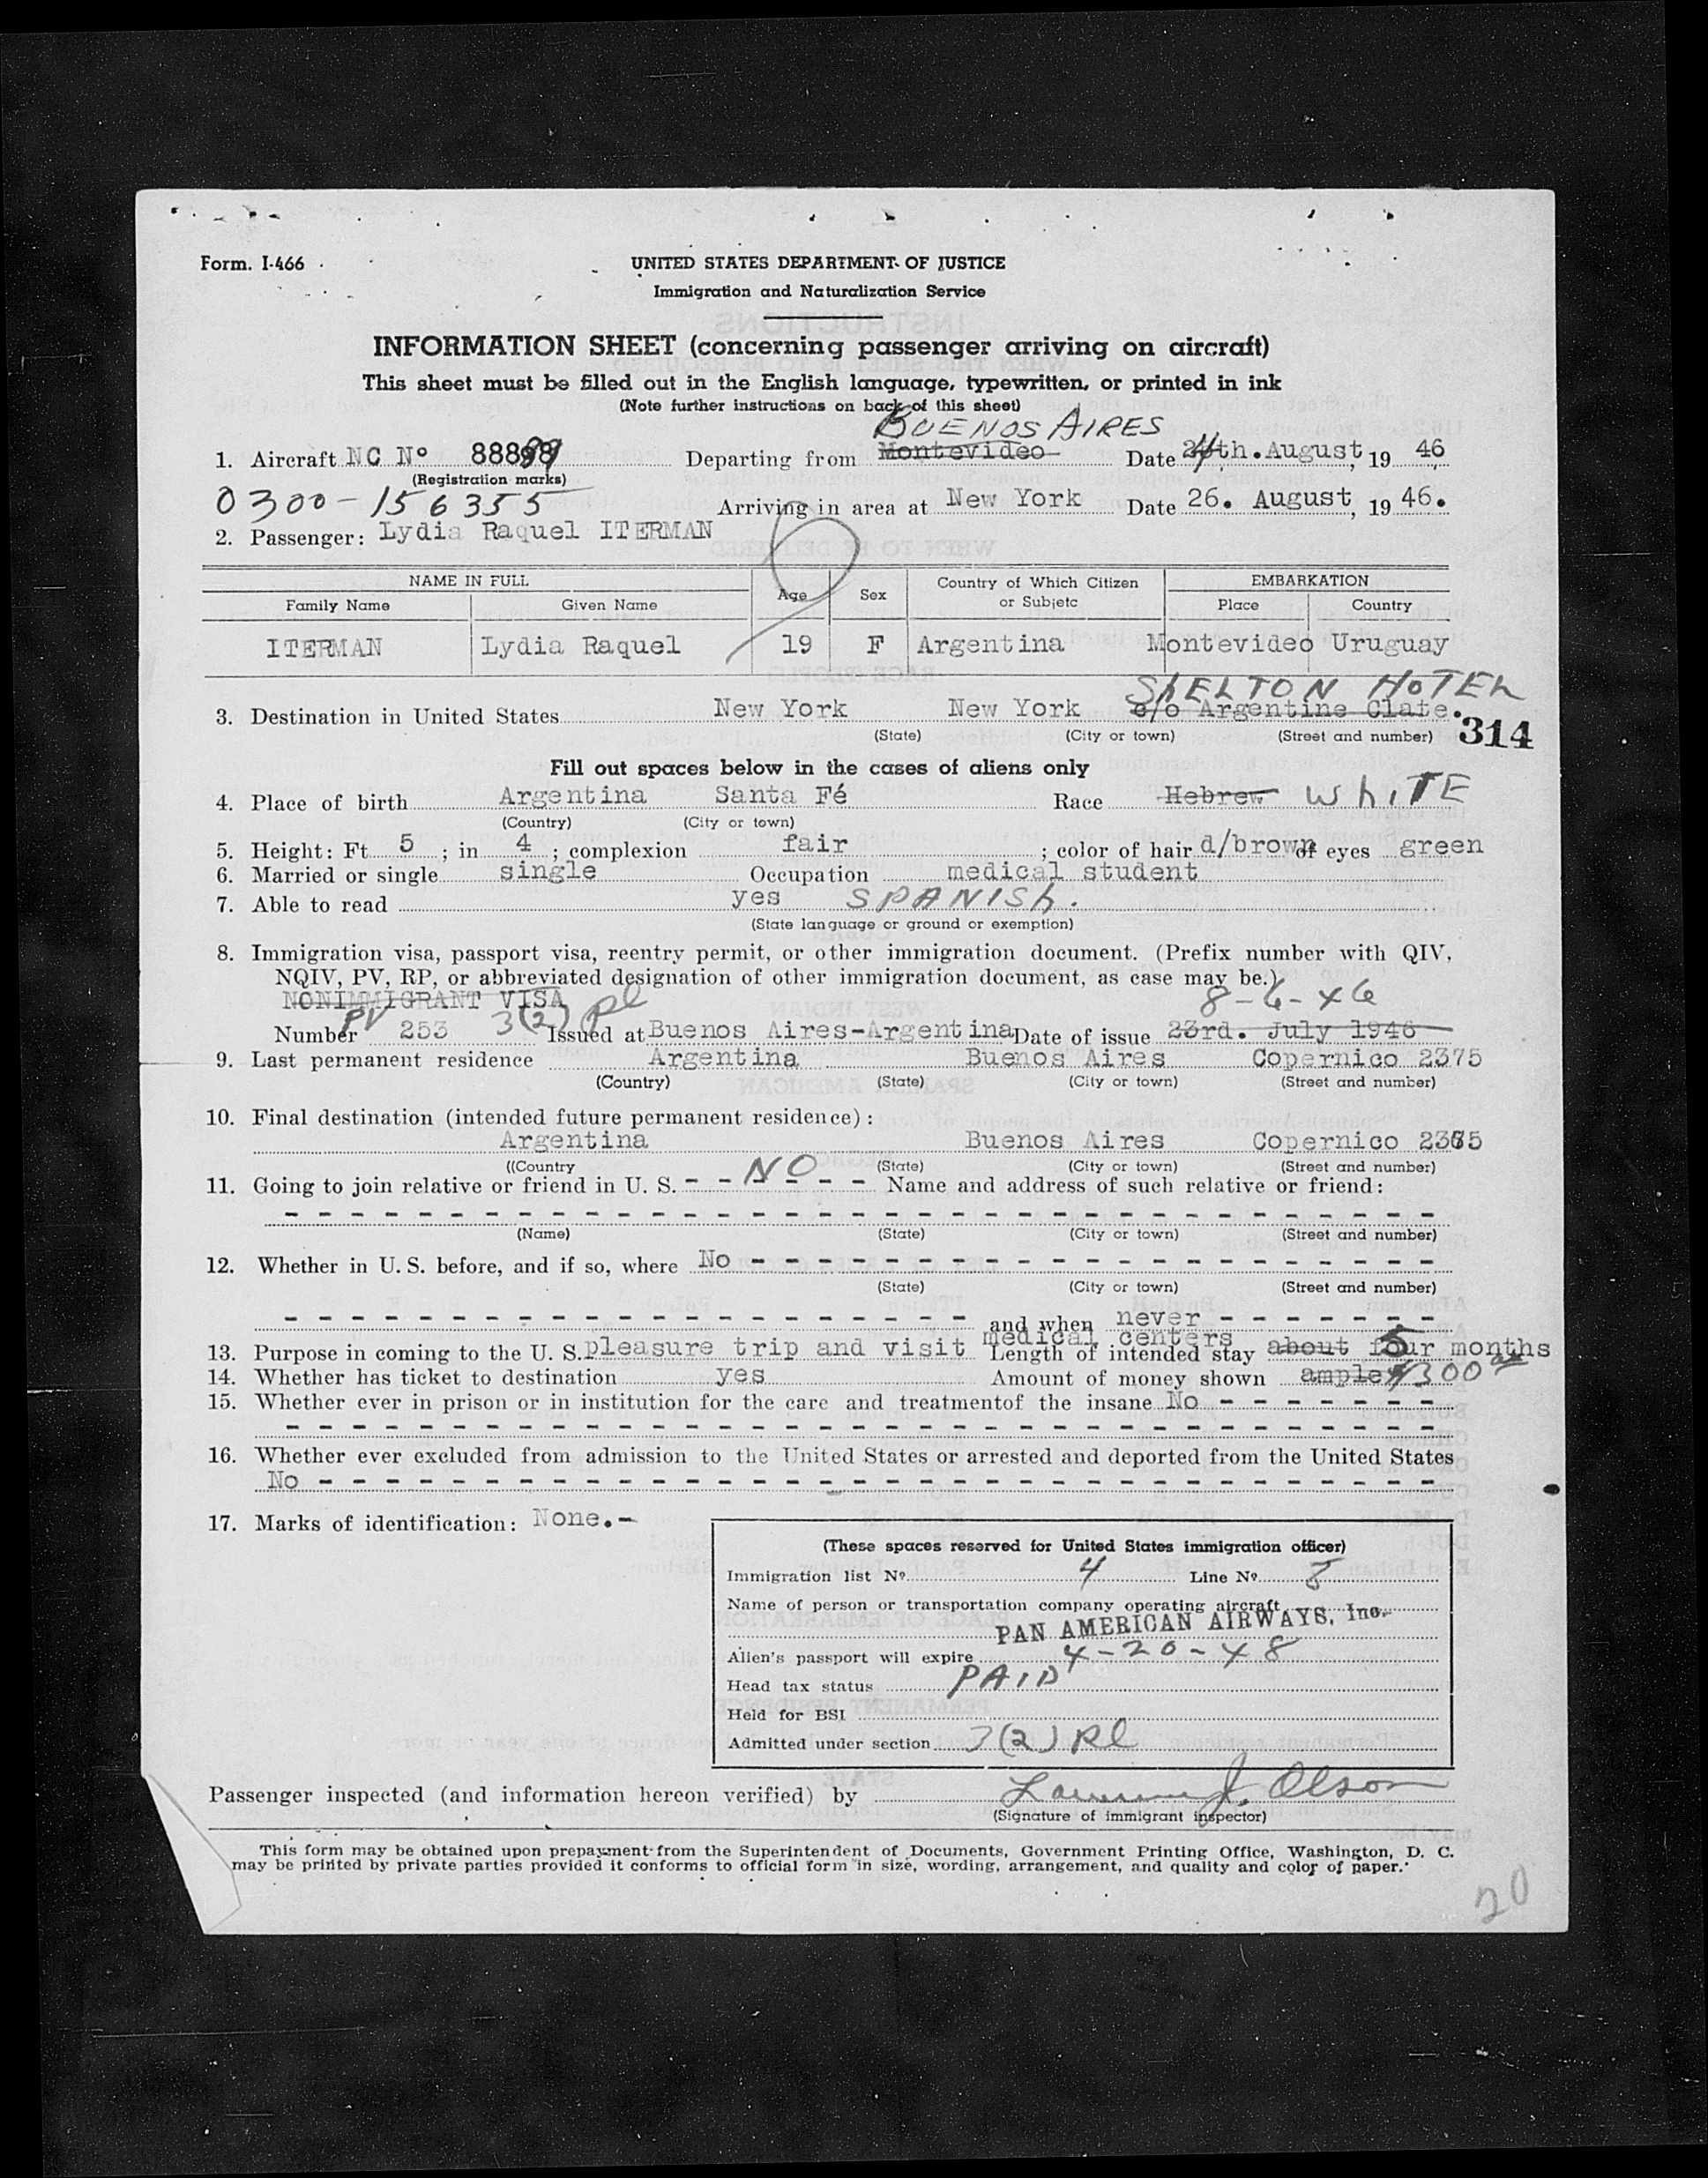 Form. I-466
UNITED STATES DEPARTMENT OF JUSTICE
Immigration and Naturalization Service
INFORMATION SHEET (concerning passenger arriving on aircraft)
This sheet must be filled out in the English language, typewritten, or printed in ink
(Note further instructions on back of this sheet)
BUENOS AIRES
1. Aircraft NC Nº 88899 Departing from Montevideo Date 24th. August, 19 46
(Registration marks)
0300-156355 Arriving in area at New York Date 26. August, 19 46.
2. Passenger: Lydia Raquel ITERMAN
NAME IN FULL Age Sex Country of Which Citizen or Subjetc EMBARKATION
Family Name Given Name Place Country
ITERMAN Lydia Raquel 19 F Argentina Montevideo Uruguay
SHELTON HOTEL
3. Destination in United States New York New York c/o Argentine Clate.
(State) (City or town) (Street and number) 314
Fill out spaces below in the cases of aliens only
4. Place of birth Argentina Santa Fé Race Hebrew WHITE
(Country) (City or town)
5. Height: Ft. 5 ; in 4 ; complexion fair ; color of hair d/brown of eyes green
6. Married or single single Occupation medical student
7. Able to read yes SPANISH.
(State language or ground or exemption)
8. Immigration visa, passport visa, reentry permit, or other immigration document. (Prefix number with QIV,
NQIV, PV, RP, or abbreviated designation of other immigration document, as case may be.)
NONIMMIGRANT VISA 8-6-46
Number PV 253 3(2) Pl Issued at Buenos Aires-Argentina Date of issue 23rd. July 1946
9. Last permanent residence Argentina Buenos Aires Copernico 2375
(Country) (State) (City or town) (Street and number)
10. Final destination (intended future permanent residence):
Argentina Buenos Aires Copernico 2375
((Country (State) (City or town) (Street and number)
11. Going to join relative or friend in U. S. - - NO - - - Name and address of such relative or friend:
(Name) (State) (City or town) (Street and number)
12. Whether in U. S. before, and if so, where No
(State) (City or town) (Street and number)
and when never
medical centers
13. Purpose in coming to the U. S. pleasure trip and visit Length of intended stay about four 5 months
14. Whether has ticket to destination yes Amount of money shown ample $300
15. Whether ever in prison or in institution for the care and treatmentof the insane No
16. Whether ever excluded from admission to the United States or arrested and deported from the United States
No
17. Marks of identification: None.-
(These spaces reserved for United States immigration officer)
Immigration list Nº 4 Line Nº 8
Name of person or transportation company operating aircraft
PAN AMERICAN AIRWAYS, Inc.
Alien's passport will expire 4-20-48
Head tax status PAID
Held for BSI
Admitted under section 3(2) Pl
Passenger inspected (and information hereon verified) by J. Olson
(Signature of immigrant inspector)
This form may be obtained upon prepayment from the Superintendent of Documents, Government Printing Office, Washington, D. C.
may be printed by private parties provided it conforms to official form in size, wording, arrangement, and quality and color of paper.
20